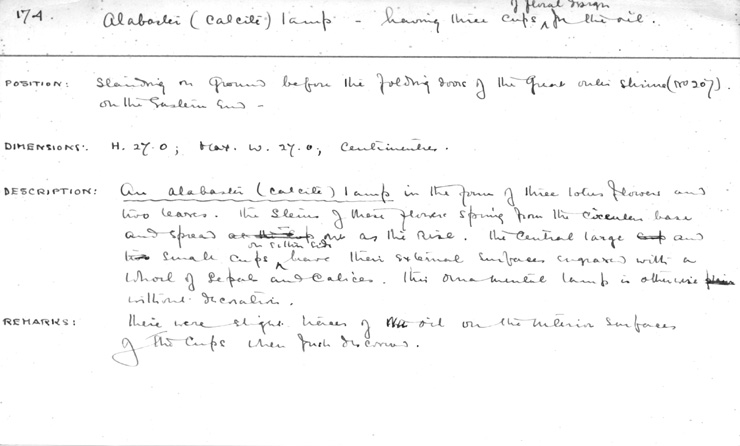 174. Alabaster (calcite) lamp - having three cups of floral design for the oil.
POSITION: Standing on ground before the folding doors of the Great outer shrine (No 207).
on the Eastern End -
DIMENSIONS: H. 27.0; Max. W. 27.0; Centimetres.
DESCRIPTION: An alabaster (calcite) lamp in the form of three lotus flowers and
two leaves. The stems of these flowers spring from the circular base
and spread out as the rise. The central large and
small cups on either side have their external surfaces engraved with a
whorl of sepals and calices. This ornamental lamp is otherwise
without decoration.
REMARKS: There were slight traces of oil on the interior surfaces
of the cups when first discovered.